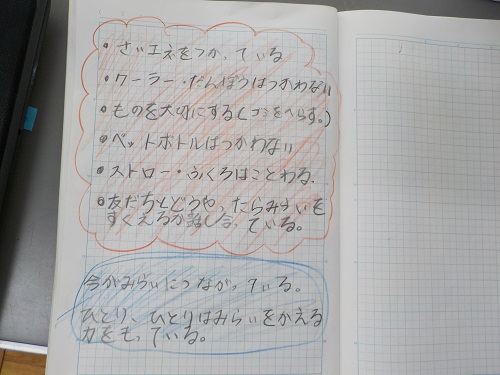 ・さいエネをつかっている
・クーラー・だんぼうはつかわない!!
・ものを大切にする(ゴミをへらす。)
・ペットボトルはつかわない!!
・ストロー・ふくろはことわる.
・友だちとどうやったらみらいを
すくえるか話し合っている。
今がみらいにつながっている。
ひとり、ひとりはみらいをかえる
力をもっている。